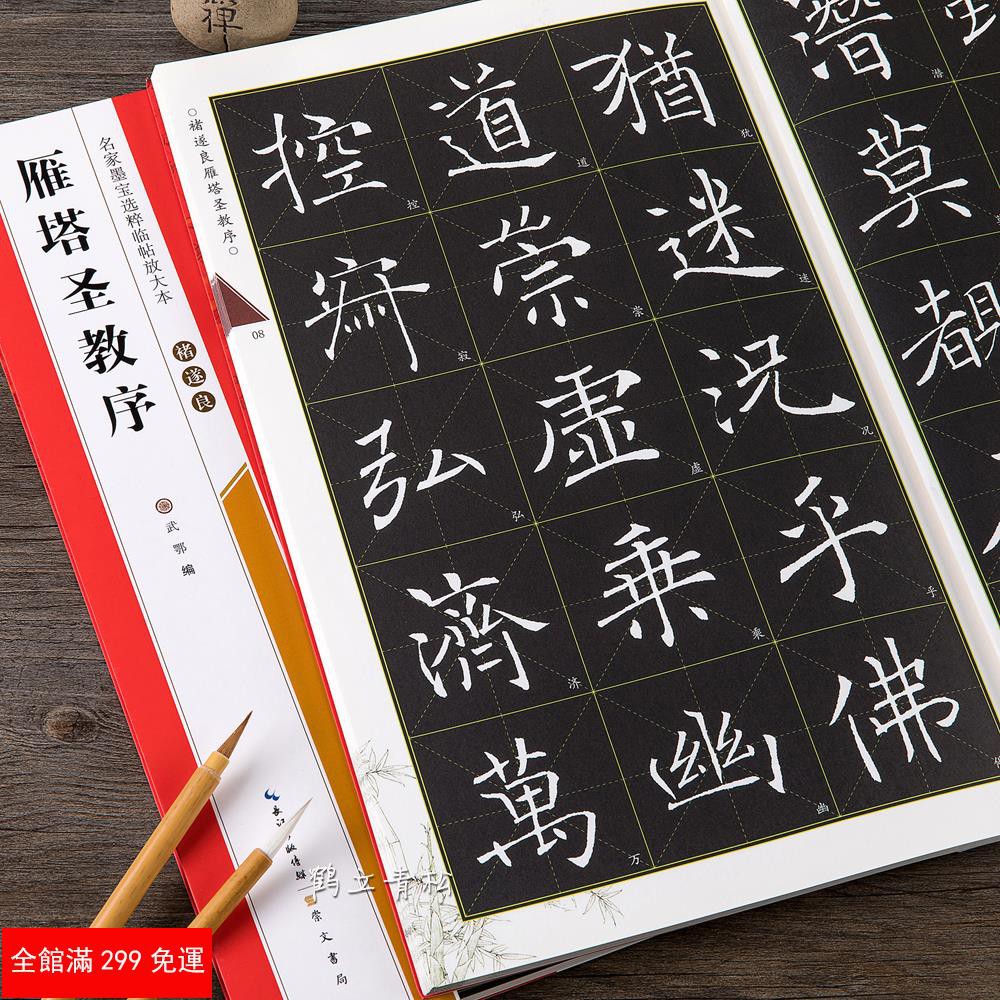 禪
名家墨宝选粹临帖放大本
雁塔圣教序
褚遂良
武鄂编
崇文书局
○褚遂良雁塔圣教序○
08
潛
潜
莫
覩
猶迷況乎佛
犹
迷
况
乎
道崇虛乘幽
道
崇
虚
乘
幽
控寂弘濟萬
控
寂
弘
济
万
鹤文青松
全館滿 299 免運